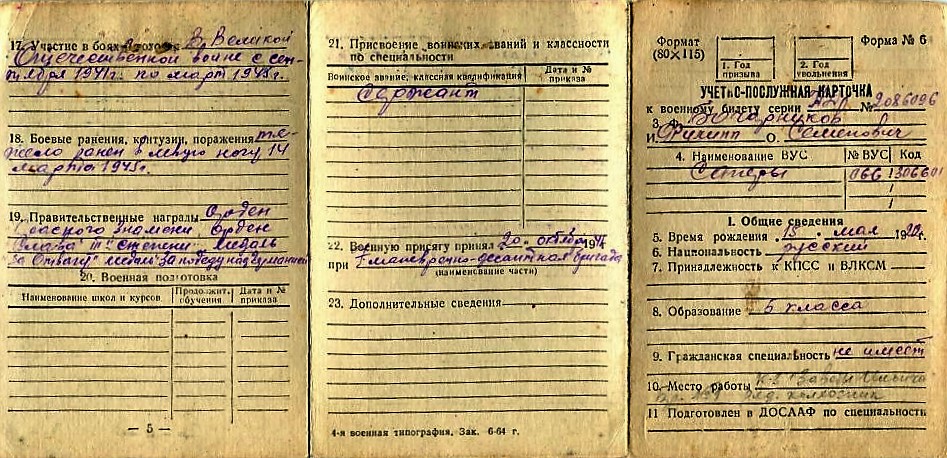 17. Участие в боях, походах В Великой
Отечественной войне с сен-
тября 1941г. по март 1945г.
18. Боевые ранения, контузии, поражения тя-
жело ранен в левую ногу 14
марта 1945г.
19. Правительственные награды Орден
Красного знамени, Орден
Слава III степени медаль
"За Отвагу" медаль За победу над Германией
20. Военная подготовка
Наименование школ и курсов
Продолжит. обучения
Дата и № приказа
— 5 —
21. Присвоение воинских званий и классности
по специальности
Воинское звание, классная квалификация
Дата и № приказа
Сержант
22. Военную присягу принял 20 октября 1941
при маневренно-десантная бригада
(наименование части)
23. Дополнительные сведения —
4-я военная типография, Зак. 6-64 г.
Формат
(80×115)
1. Год призыва
2. Год увольнения
Форма № 6
УЧЕТНО-ПОСЛУЖНАЯ КАРТОЧКА
к военному билету серии № 2086096
3. Ф. Бочарников
И. Филипп О. Семенович
4. Наименование ВУС
№ ВУС
Код
Сапёры
066
1306601
I. Общие сведения
5. Время рождения 15 мая 1922г.
6. Национальность русский
7. Принадлежность к КПСС и ВЛКСМ
8. Образование 5 класса
9. Гражданская специальность не имеет
10. Место работы к-з Заветы Ильича
колхозник
11 Подготовлен в ДОСААФ по специальности